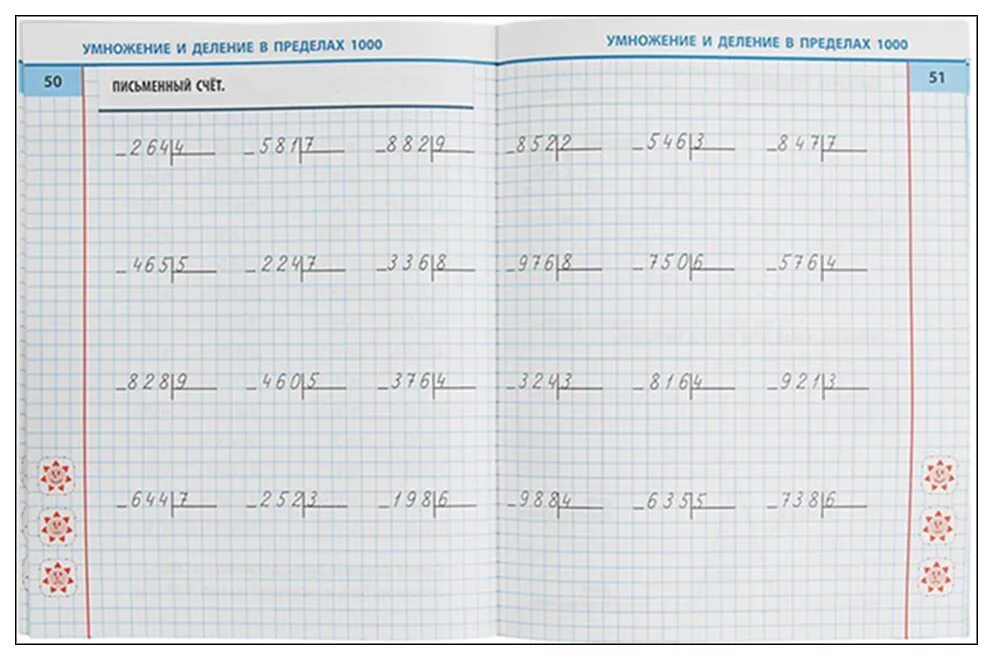 УМНОЖЕНИЕ И ДЕЛЕНИЕ В ПРЕДЕЛАХ 1000
50
ПИСЬМЕННЫЙ СЧЁТ.
_264|4 _581|7 _882|9
_465|5 _224|7 _336|8
_828|9 _460|5 _376|4
_644|7 _252|3 _198|6
УМНОЖЕНИЕ И ДЕЛЕНИЕ В ПРЕДЕЛАХ 1000
51
_852|2 _546|3 _847|7
_976|8 _750|6 _576|4
_324|3 _816|4 _921|3
_988|4 _635|5 _738|6